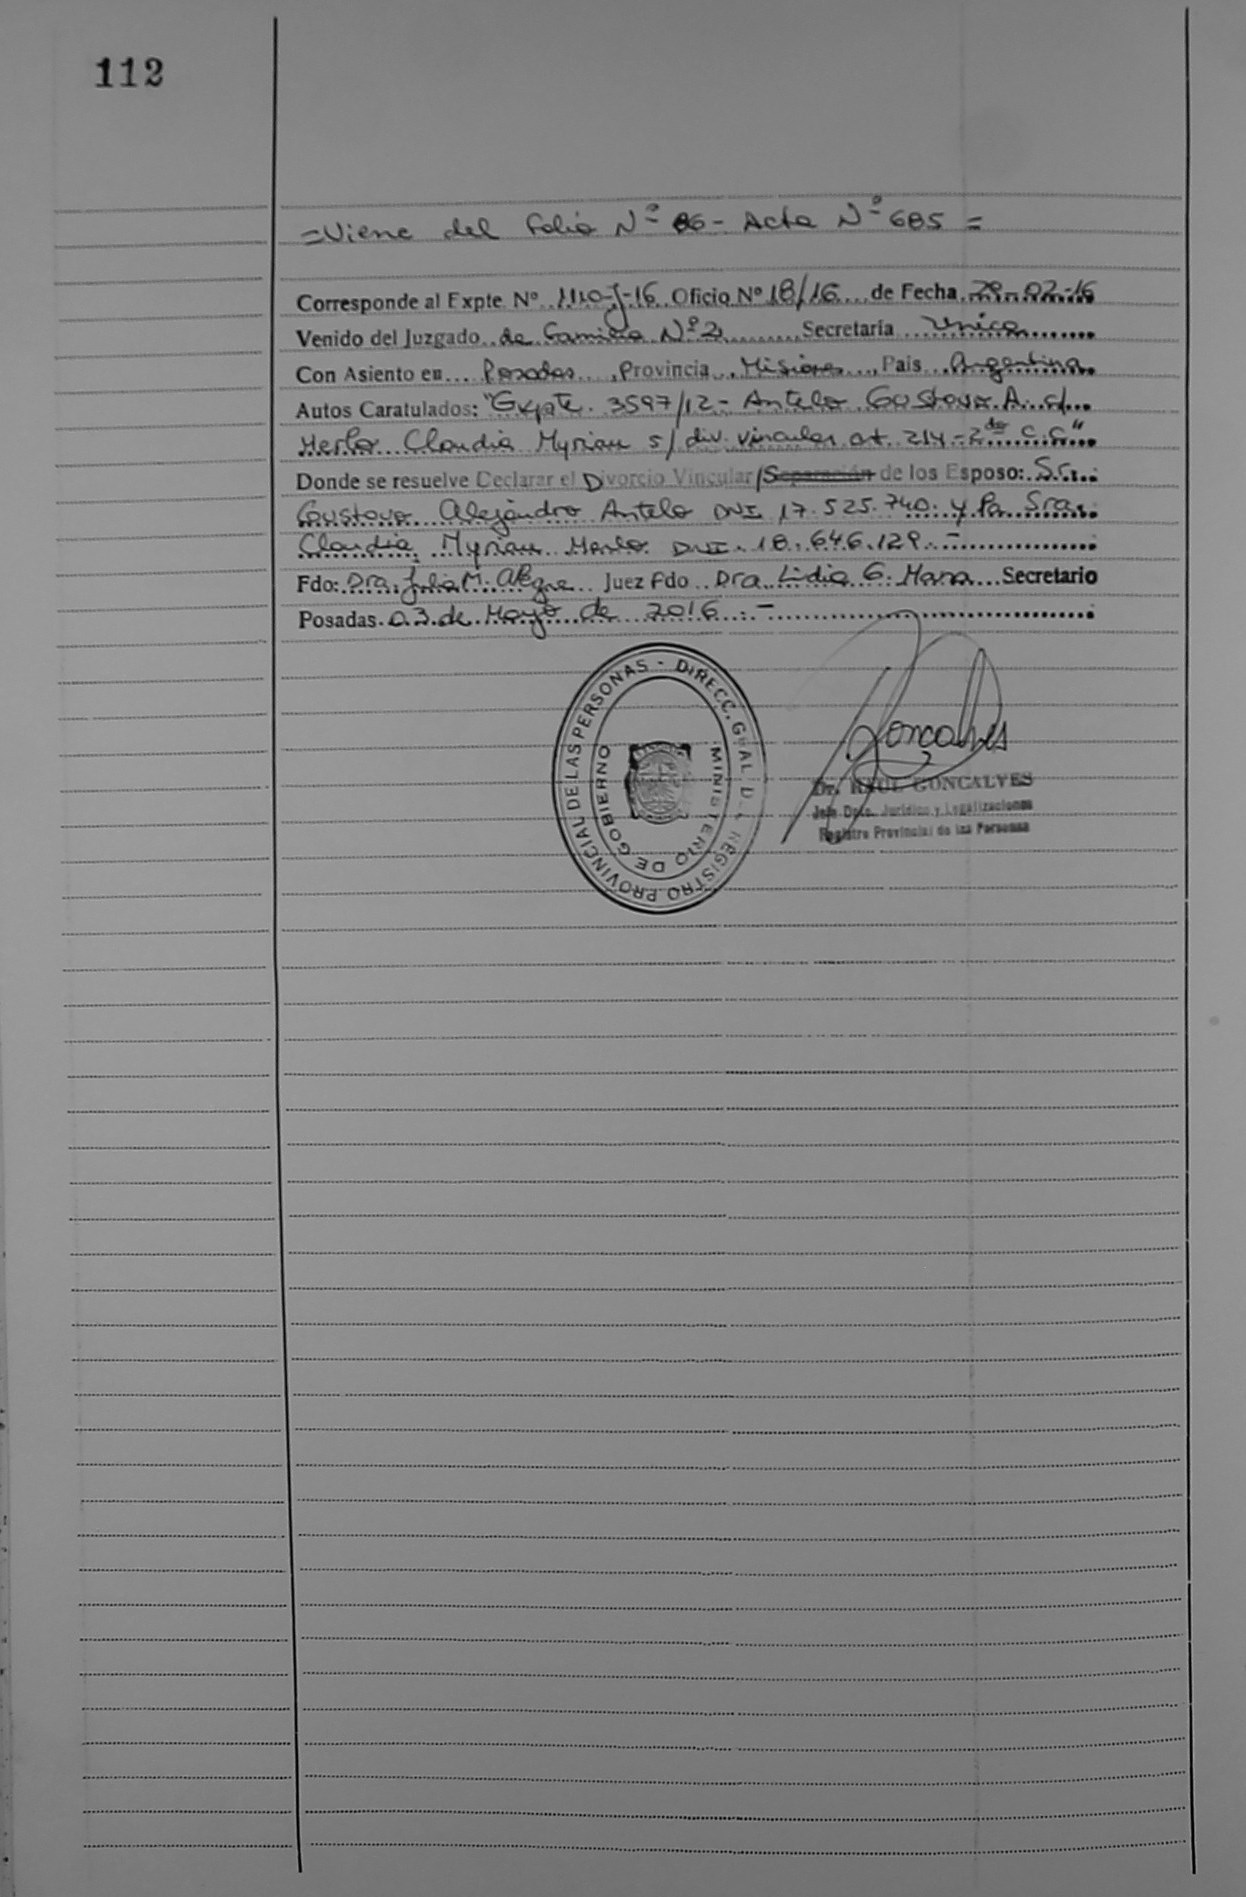 112
=Viene del Folio Nº 86- Acta Nº 685 =
Corresponde al Expte Nº 1110-J-16 Oficio Nº 18/16 de Fecha 29-02-16
Venido del Juzgado de Familia Nº 2 Secretaría Unica
Con Asiento en Posadas, Provincia Misiones, País Argentina
Autos Caratulados: "Expte 3597/12- Antelo Gustavo A. c/
Merlo Claudia Myriam s/ div. vincular art. 214-2do C.C"
Donde se resuelve Declarar el Divorcio Vincular/Separación de los Esposo: Sr.
Gustavo Alejandro Antelo DNI 17.525.740. y la Sra.
Claudia Myriam Merlo DNI. 18.646.129.-
Fdo: Dra. Julia M. Alegre Juez Fdo Dra Lidia G. Secretario
Posadas 03 de Mayo de 2016.-
DIRECC. GRAL. DEL REGISTRO PROVINCIAL DE LAS PERSONAS -
MINISTERIO DE GOBIERNO
Goncalves
Dr. RAUL GONCALVES
Jefe Dpto. Jurídico y Legalizaciones
Registro Provincial de las Personas